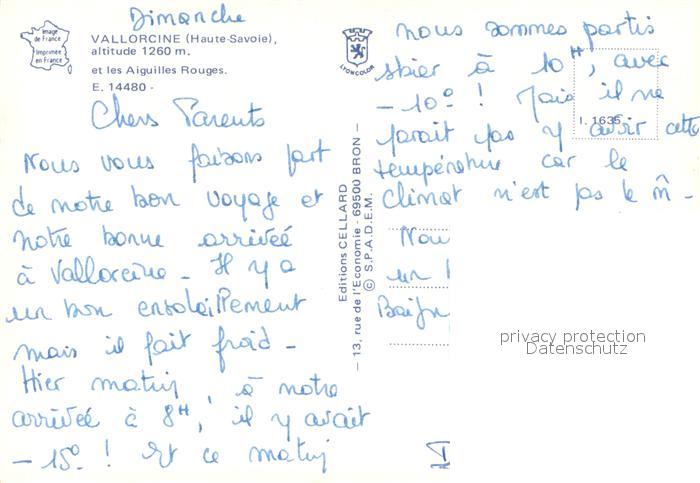 Dimanche
Image de France
Imprimée en France
VALLORCINE (Haute-Savoie),
altitude 1260 m.
et les Aiguilles Rouges.
E. 14480 -
Chers Parents
Nous vous faisons part
de notre bon voyage et
notre bonne arrivée
à Vallorcine - Il y a
un bon ensoleillement
mais il fait froid -
Hier matin, à notre
arrivée à 8H, il y avait
- 15° ! Et ce matin
LYONCOLOR
Editions CELLARD
— 13, rue de l'Economie - 69500 BRON —
© S.P.A.D.E.M.
nous sommes partis
skier à 10H, avec
- 10° ! Mais il ne
parait pas y avoir cette
température car le
climat n'est pas le m̂ -
I. 1635
Nou
un
privacy protection
Datenschutz